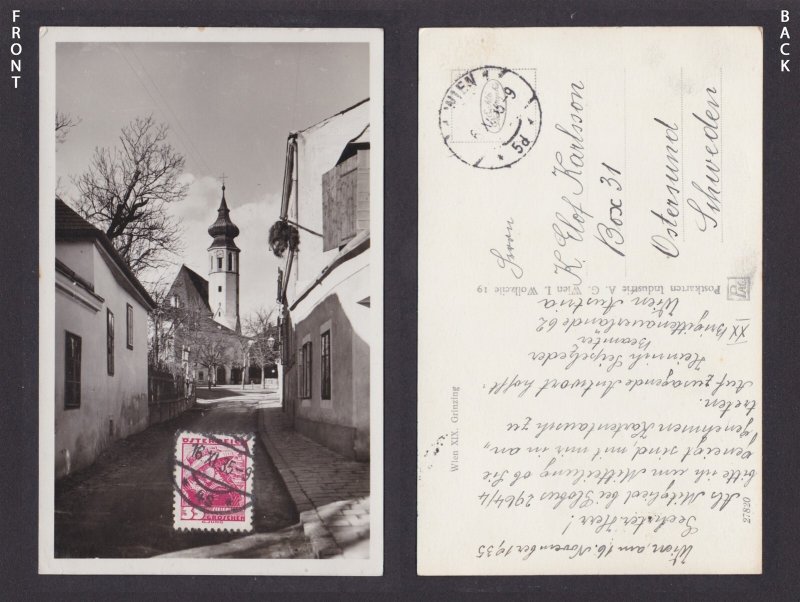 FRONT
BACK
ÖSTERREICH
16.XI.35-9
35
GROSCHEN
WIEN
5d
Herrn
K. Olof Karlsson
Box 31
Östersund
Schweden
Wien, am 16. November 1935
Geehrter Herr!
Als Mitglied bei Globus 2964/4
bitte ich um Mitteilung ob Sie
geneigt sind, mit mir in an„
genehmen Kartentausch zu
treten.
Auf zusagende Antwort hofft.
Heinrich Seipelzeder
Beamter
XX Brigittenauerlände 62
Wien Austria
Postkarten Industrie A. G. Wien I. Wollzeile 19
PAG
Wien XIX. Grinzing
27820